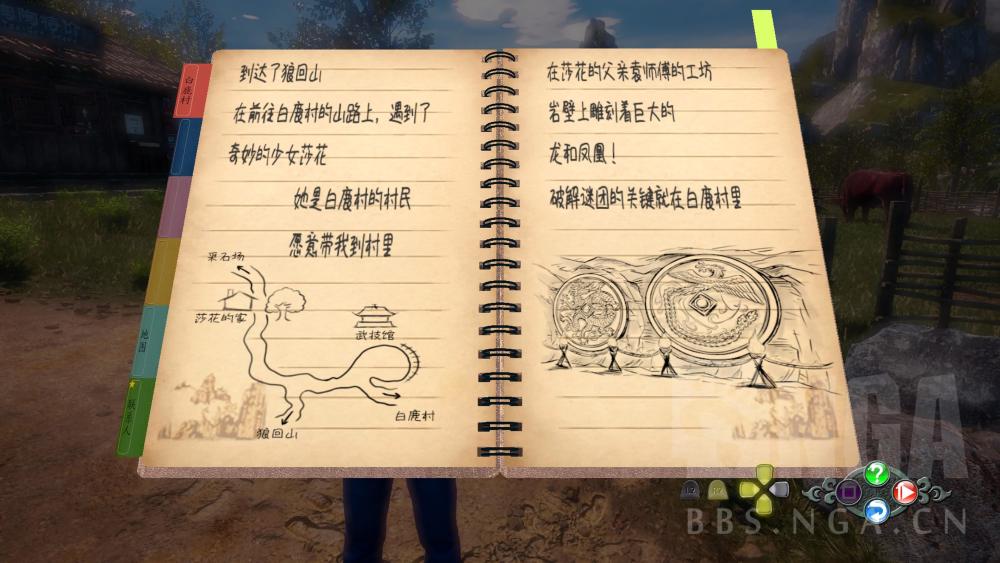 到达了狼回山
在前往白鹿村的山路上，遇到了
奇妙的少女莎花
她是白鹿村的村民
愿意带我到村里
采石场
莎花的家
武技馆
白鹿村
狼回山
在莎花的父亲袁师傅的工坊
岩壁上雕刻着巨大的
龙和凤凰！
破解谜团的关键就在白鹿村里
白鹿村
地图
联系人
L2
R2
?
NGA
BBS.NGA.CN